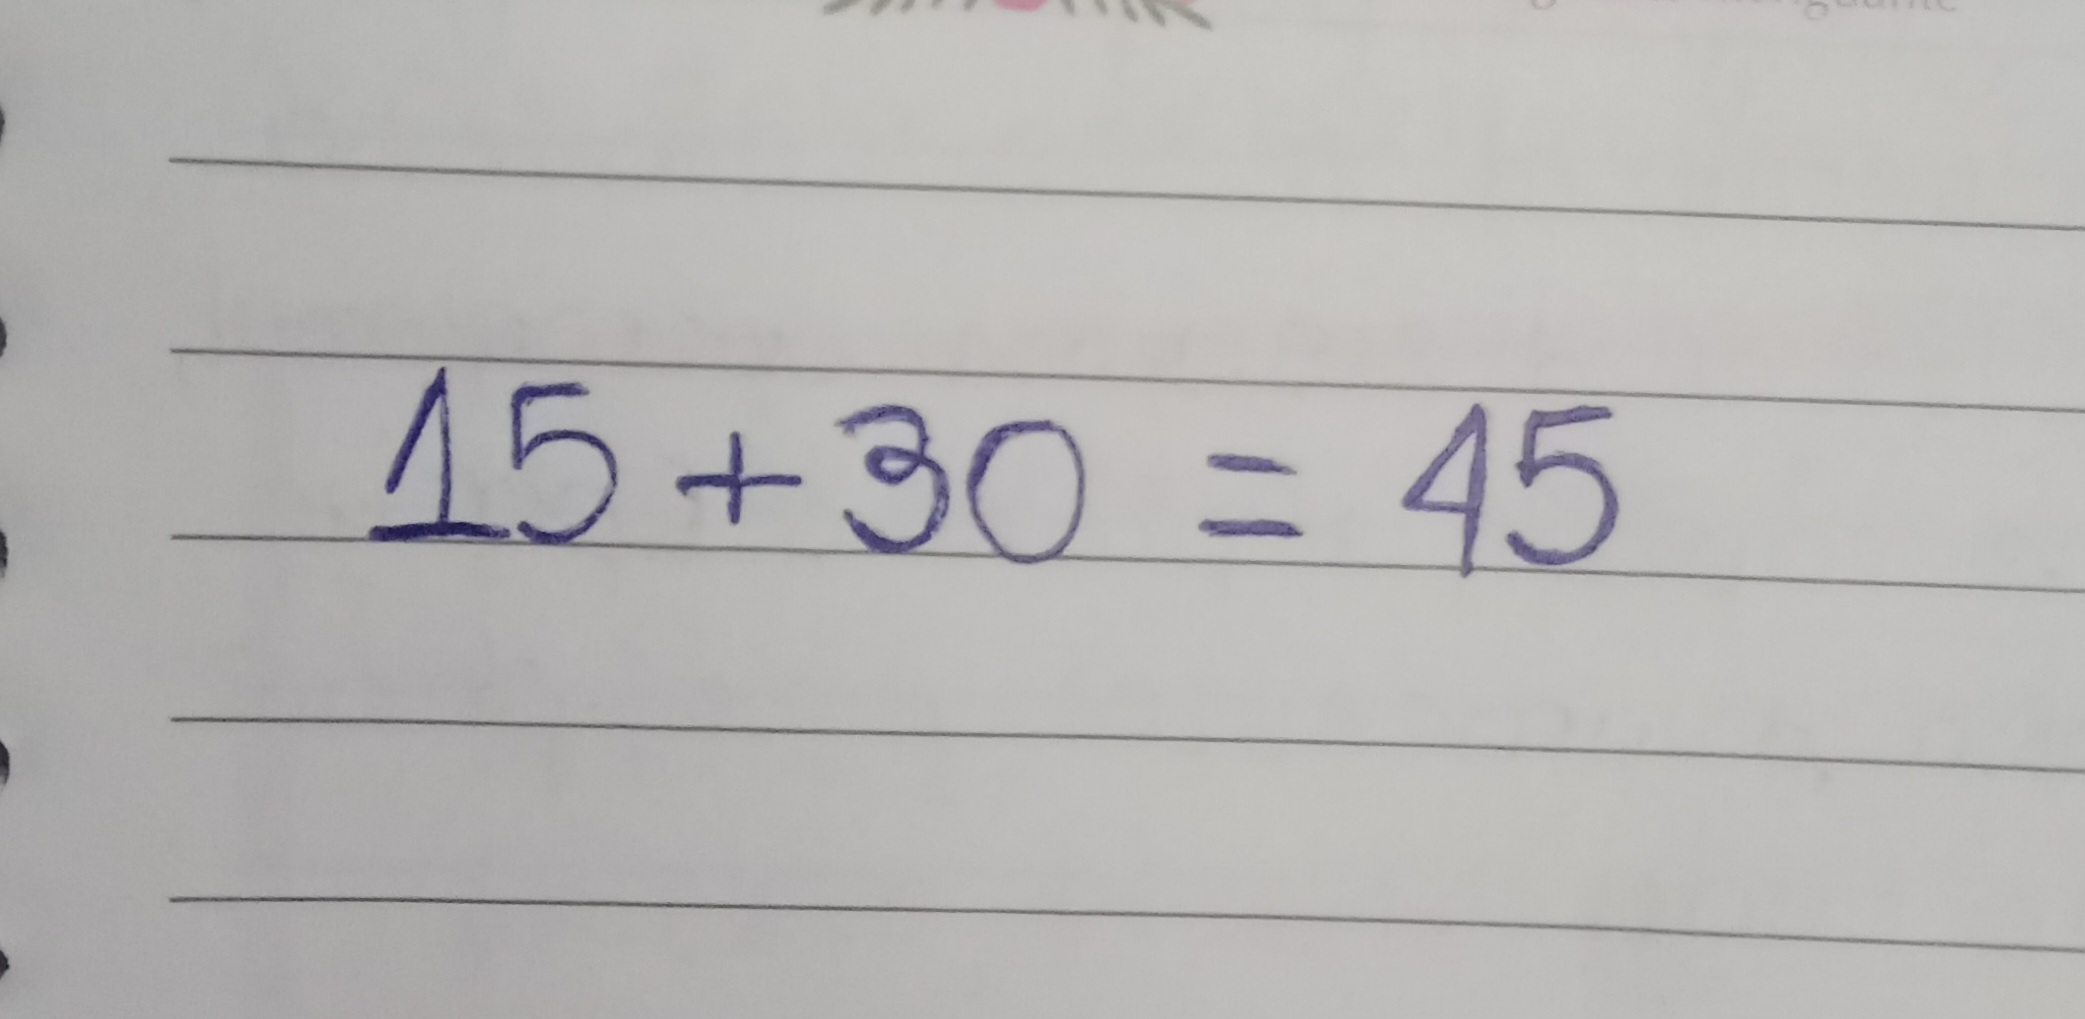 15 + 30 = 45